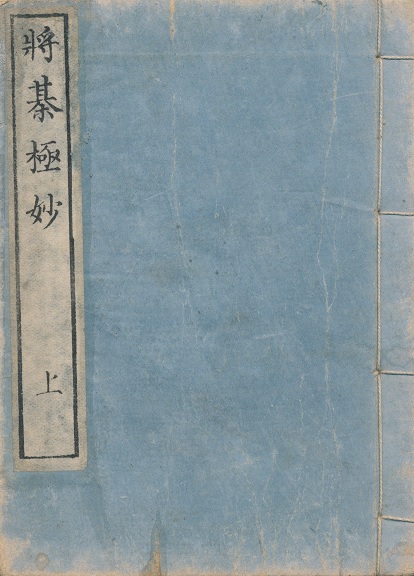 將棊極妙
上